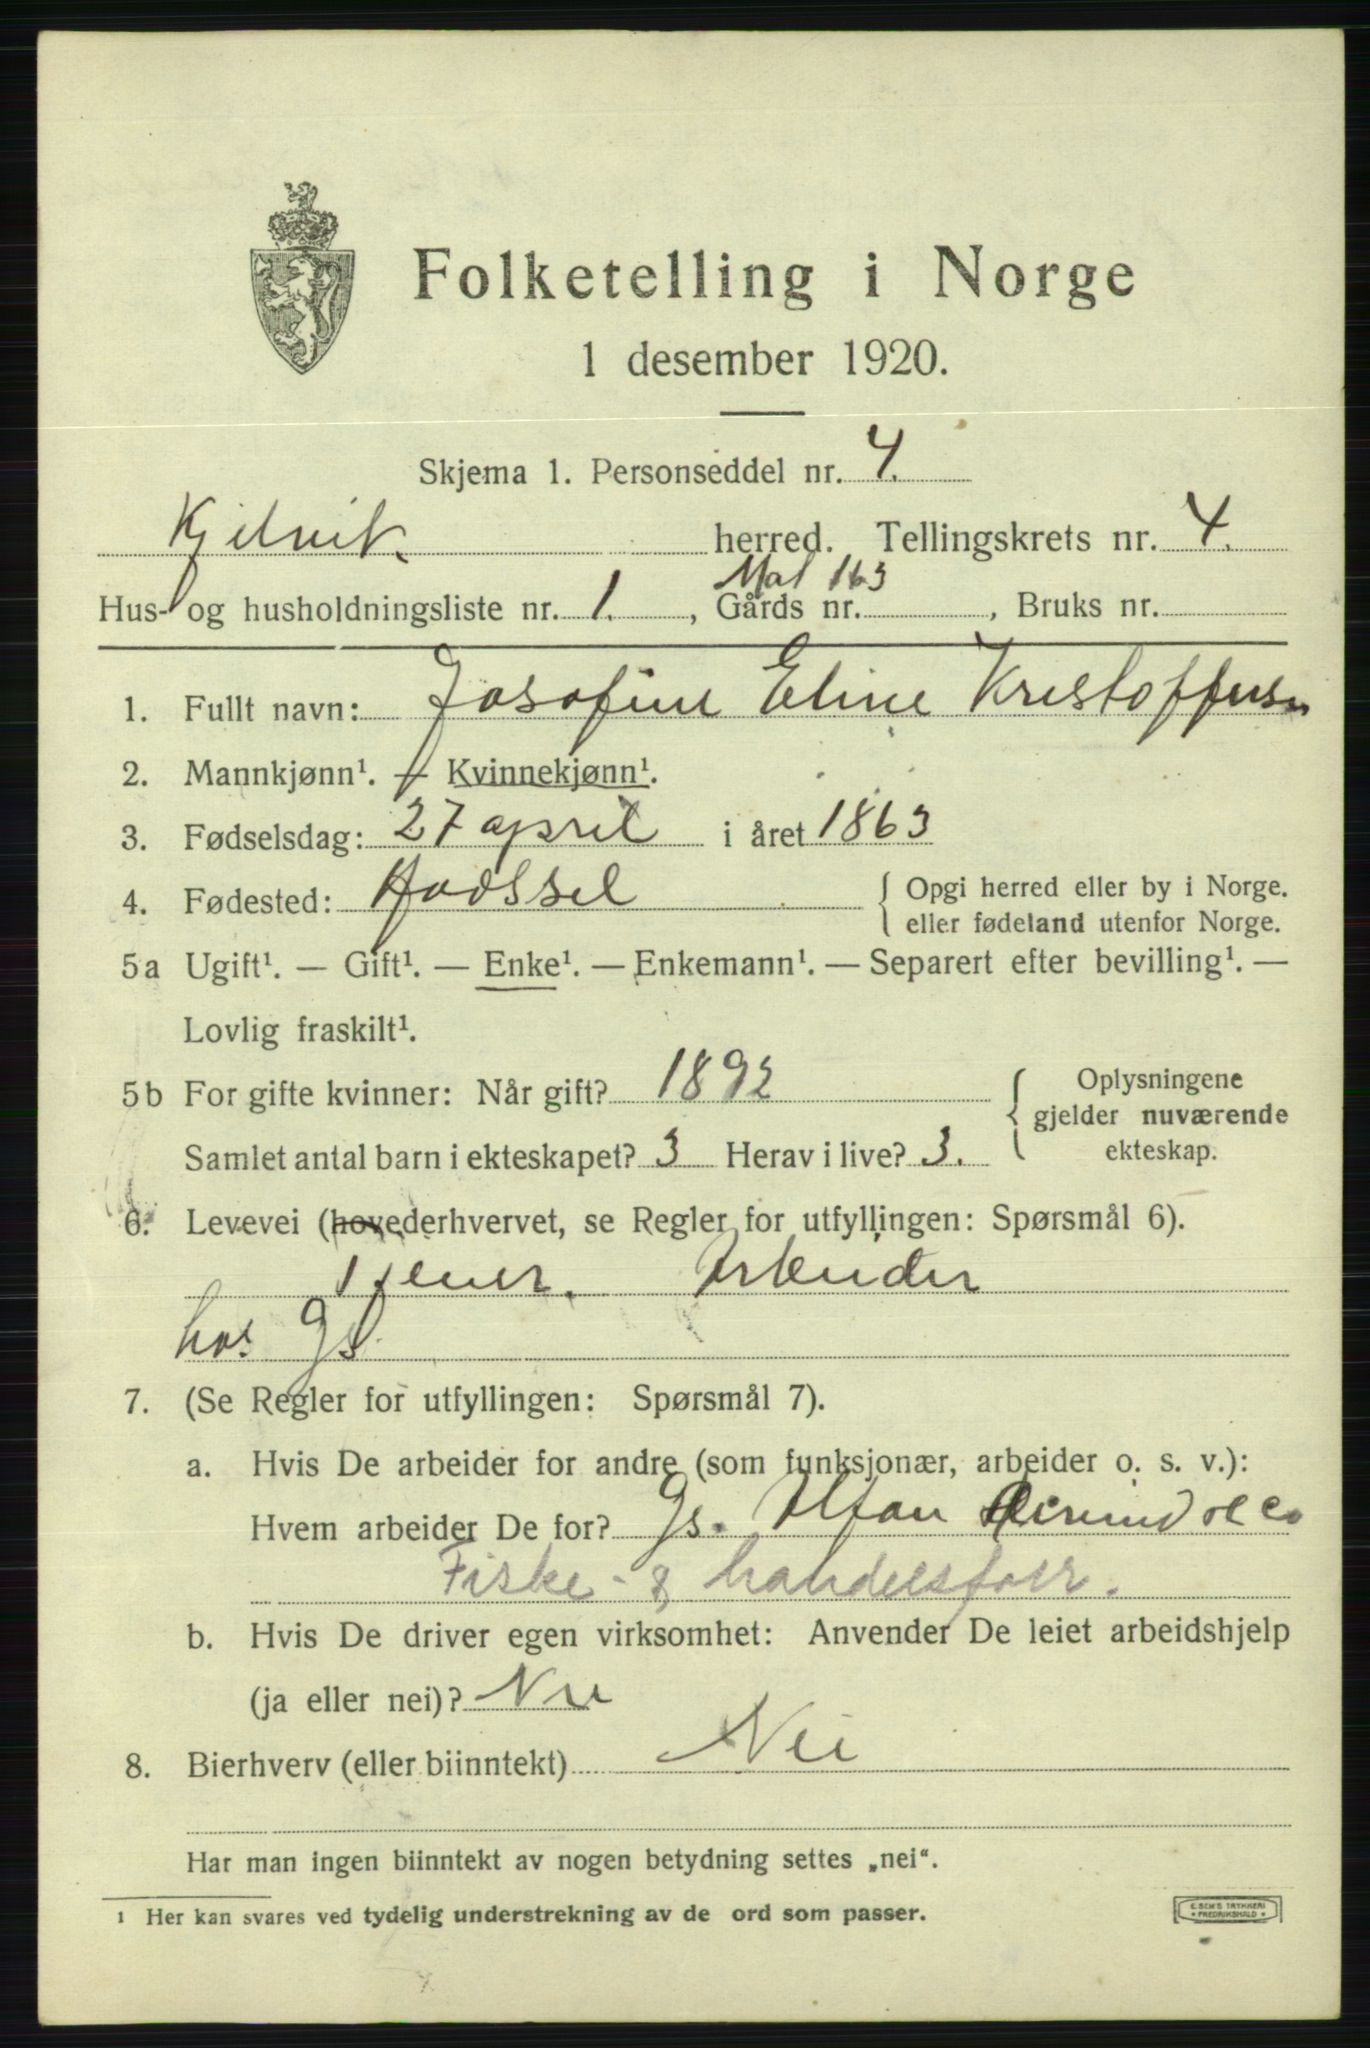 Folketelling i Norge
1 desember 1920.
Skjema 1. Personseddel nr. 4.
Kjelvik. herred. Tellingskrets nr. 4.
Mat 163
Hus- og husholdningsliste nr. 1. , Gårds nr. , Bruks nr.
1. Fullt navn: Josefine Eline Kristoffersen
2. Mannkjønn¹. — Kvinnekjønn¹.
3. Fødselsdag: 27 april i året 1863
4. Fødested: Hadssel { Opgi herred eller by i Norge.
eller fødeland utenfor Norge.
5a Ugift¹. — Gift¹. — Enke¹. — Enkemann¹. — Separert efter bevilling¹. —
Lovlig fraskilt¹.
5b For gifte kvinner: Når gift? 1892 Oplysningene
gjelder nuværende
Samlet antal barn i ekteskapet? 3 Herav i live? 3. ekteskap.
6. Levevei (hovederhvervet, se Regler for utfyllingen: Spørsmål 6).
Tjener. Arbeider
hos Gs
7. (Se Regler for utfyllingen: Spørsmål 7).
a. Hvis De arbeider for andre (som funksjonær, arbeider o. s. v.):
Hvem arbeider De for? Gs. & Co
Fiske- & handelsforr.
b. Hvis De driver egen virksomhet: Anvender De leiet arbeidshjelp
(ja eller nei)? Nei
8. Bierhverv (eller biinntekt) Nei
Har man ingen biinntekt av nogen betydning settes „nei“.
¹ Her kan svares ved tydelig understrekning av de ord som passer.
E. SEM'S TRYKKERI
FREDRIKSHALD